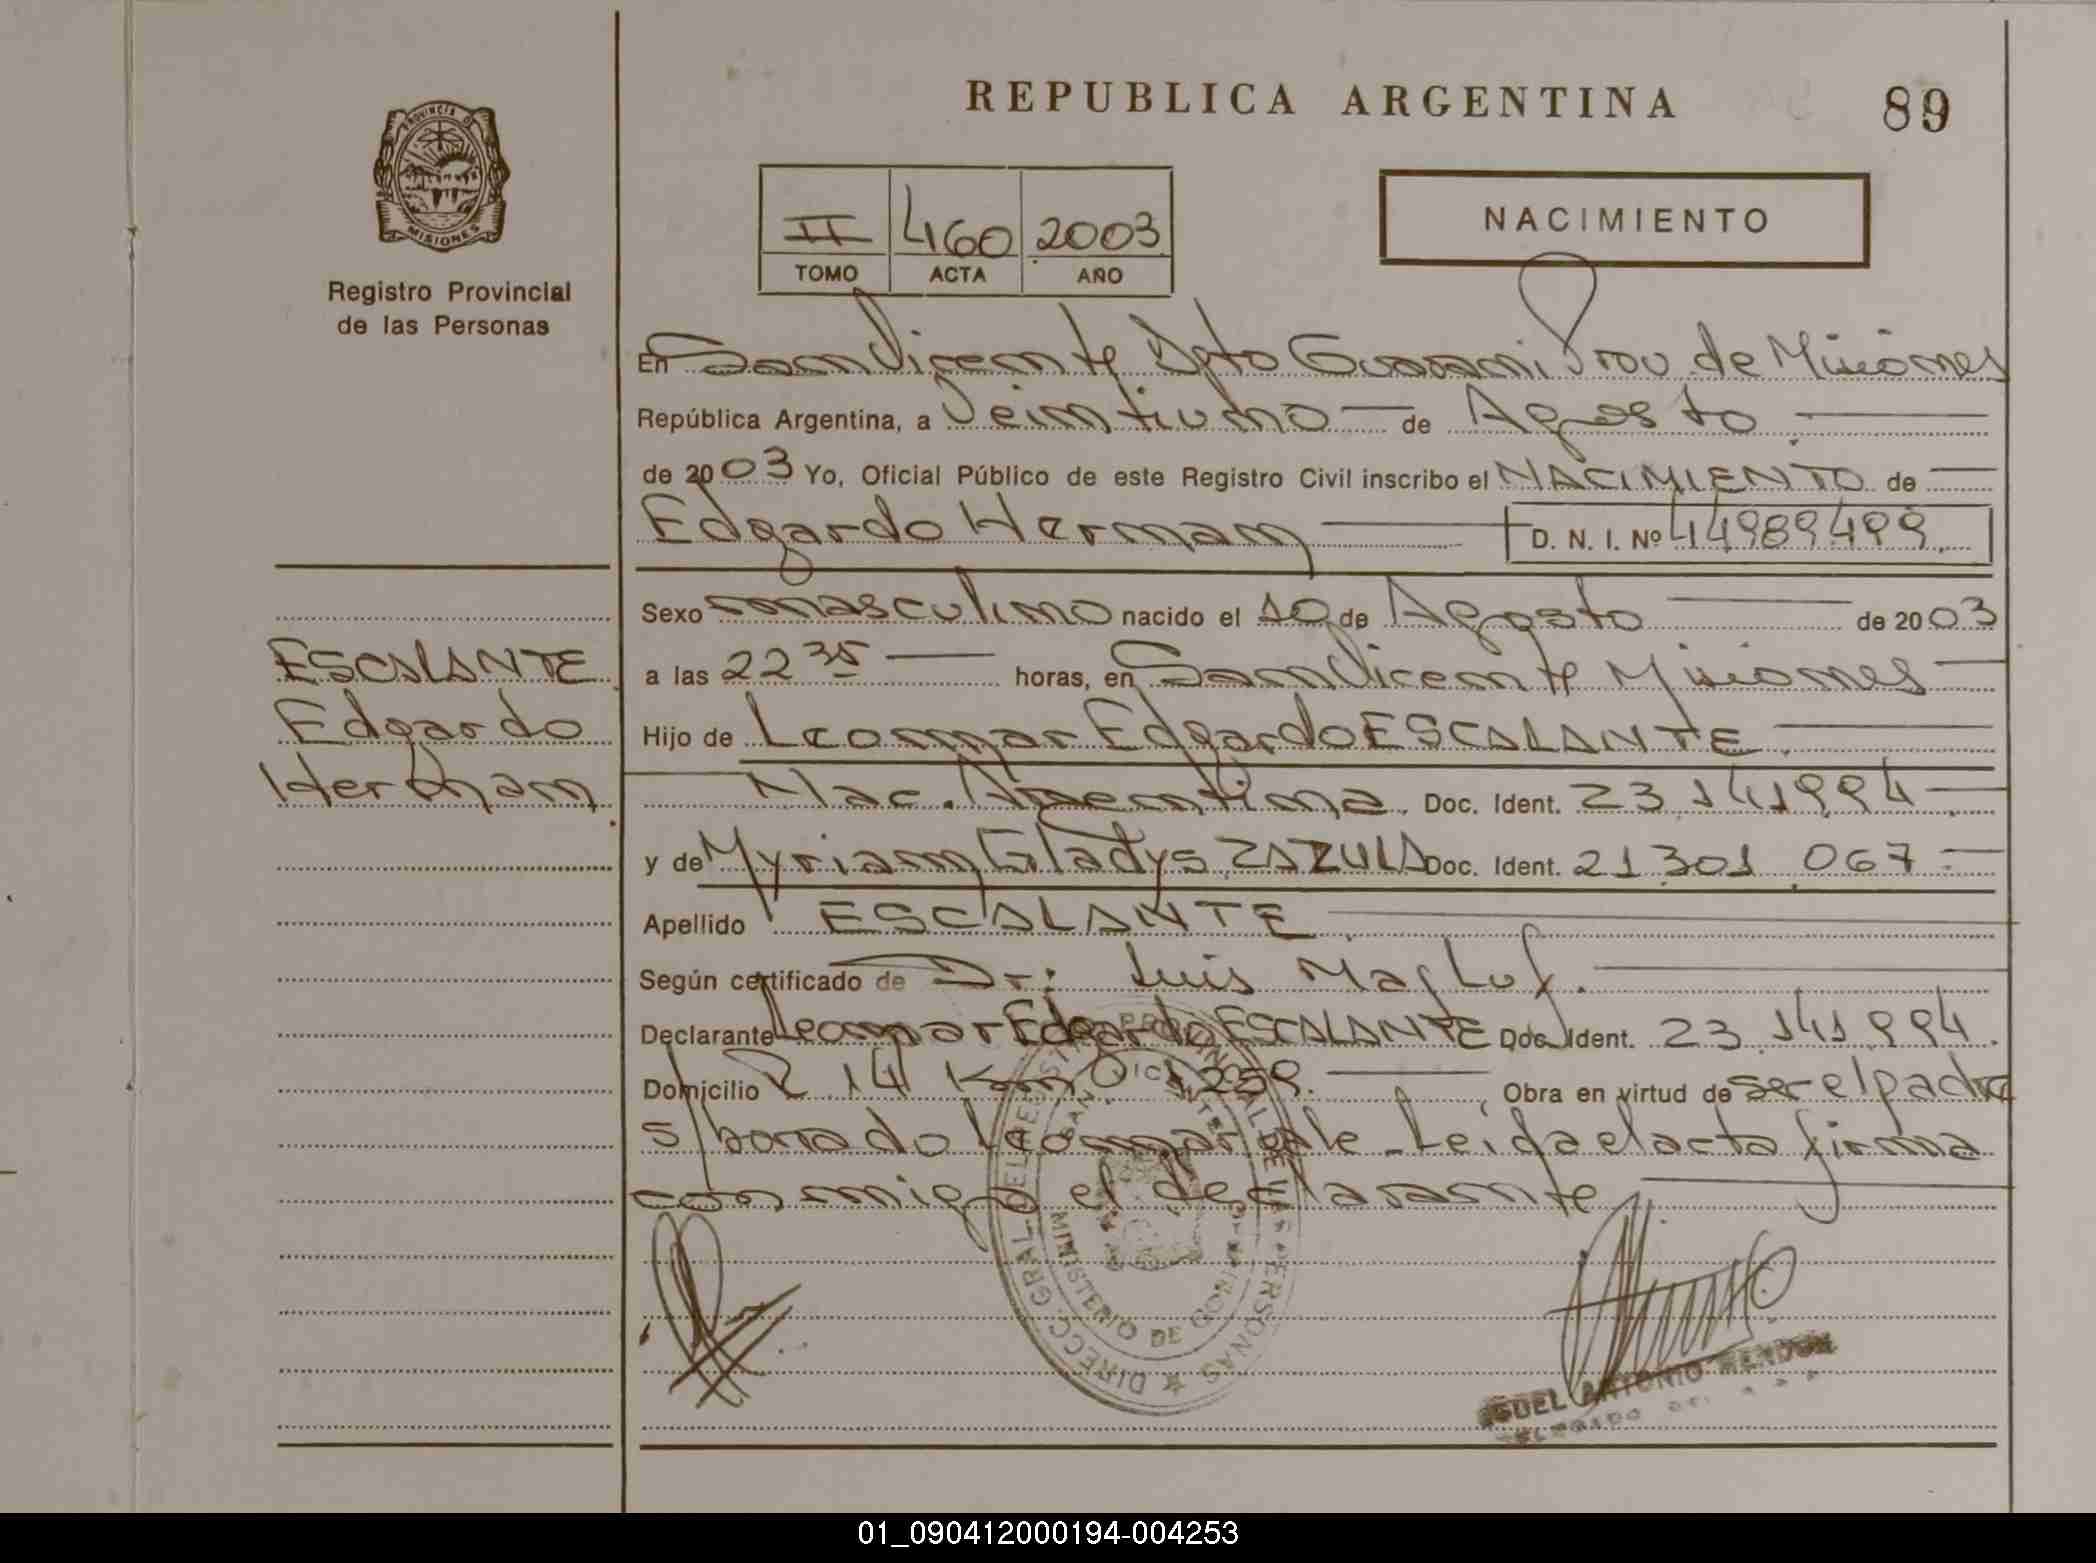 REPUBLICA ARGENTINA
89
PROVINCIA D
MISIONES
Registro Provincial
de las Personas
II 460 2003
TOMO ACTA AÑO
NACIMIENTO
En San Vicente Dpto Guarani Prov de Misiones
República Argentina, a Veintiuno de Agosto
de 2003 Yo, Oficial Público de este Registro Civil inscribo el NACIMIENTO de
Edgardo Hernan D. N. I. Nº 44989499
Sexo masculino nacido el 10 de Agosto de 2003
a las 22 35 horas, en San Vicente Misiones
Hijo de Leomar Edgardo ESCALANTE
Nac. Argentina Doc. Ident. 23 141994
y de Myriam Gladys ZAZULA Doc. Ident. 21 301 067
Apellido ESCALANTE
Según certificado de Dr: Luis
Declarante Leomar Edgardo ESCALANTE Doc. Ident. 23 141 994
Domicilio R 14 Km 1259. Obra en virtud de ser el padre
s/borrado Leomar vale - Leida el acta firma
conmigo el declarante
ESCALANTE
Edgardo
Hernan
DIRECC. GRAL. DEL REGISTRO PROVINCIAL DE LAS PERSONAS
MINISTERIO DE GOBIERNO
SAN VICENTE
ANTONIO
01_090412000194-004253